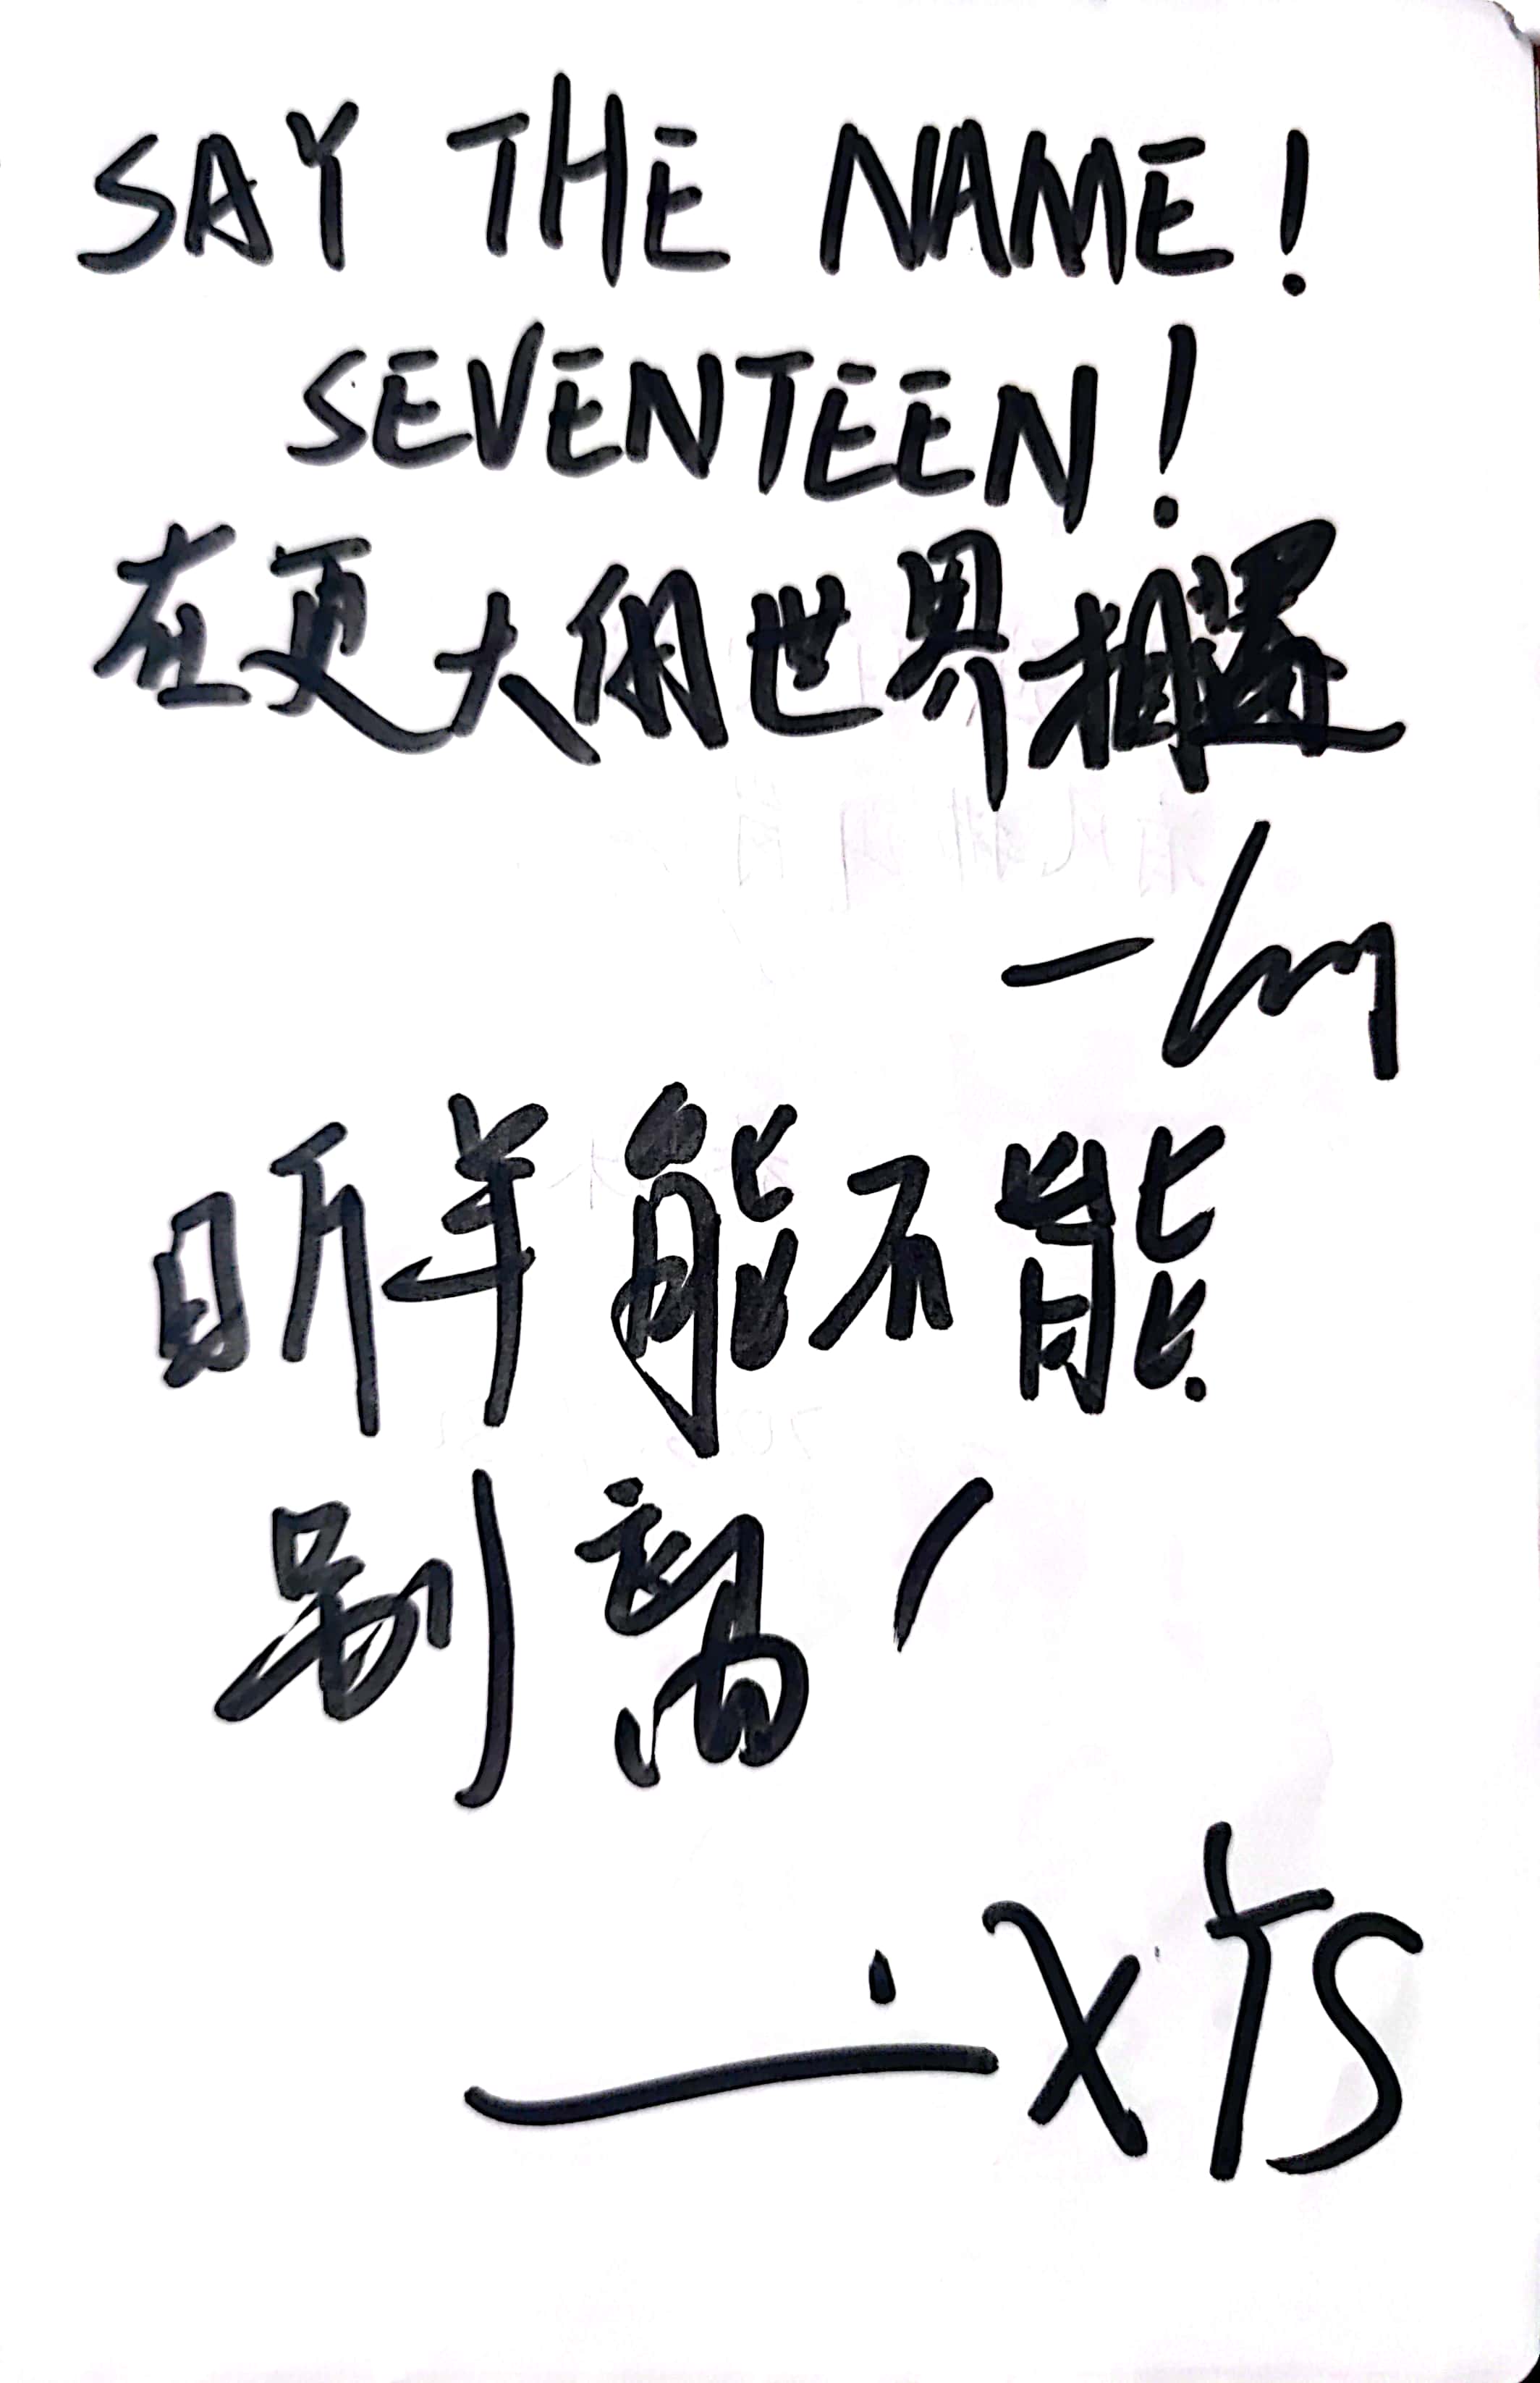 SAY THE NAME!
SEVENTEEN!
在更大的世界相遇
昕羊能不能
别离
——XTS